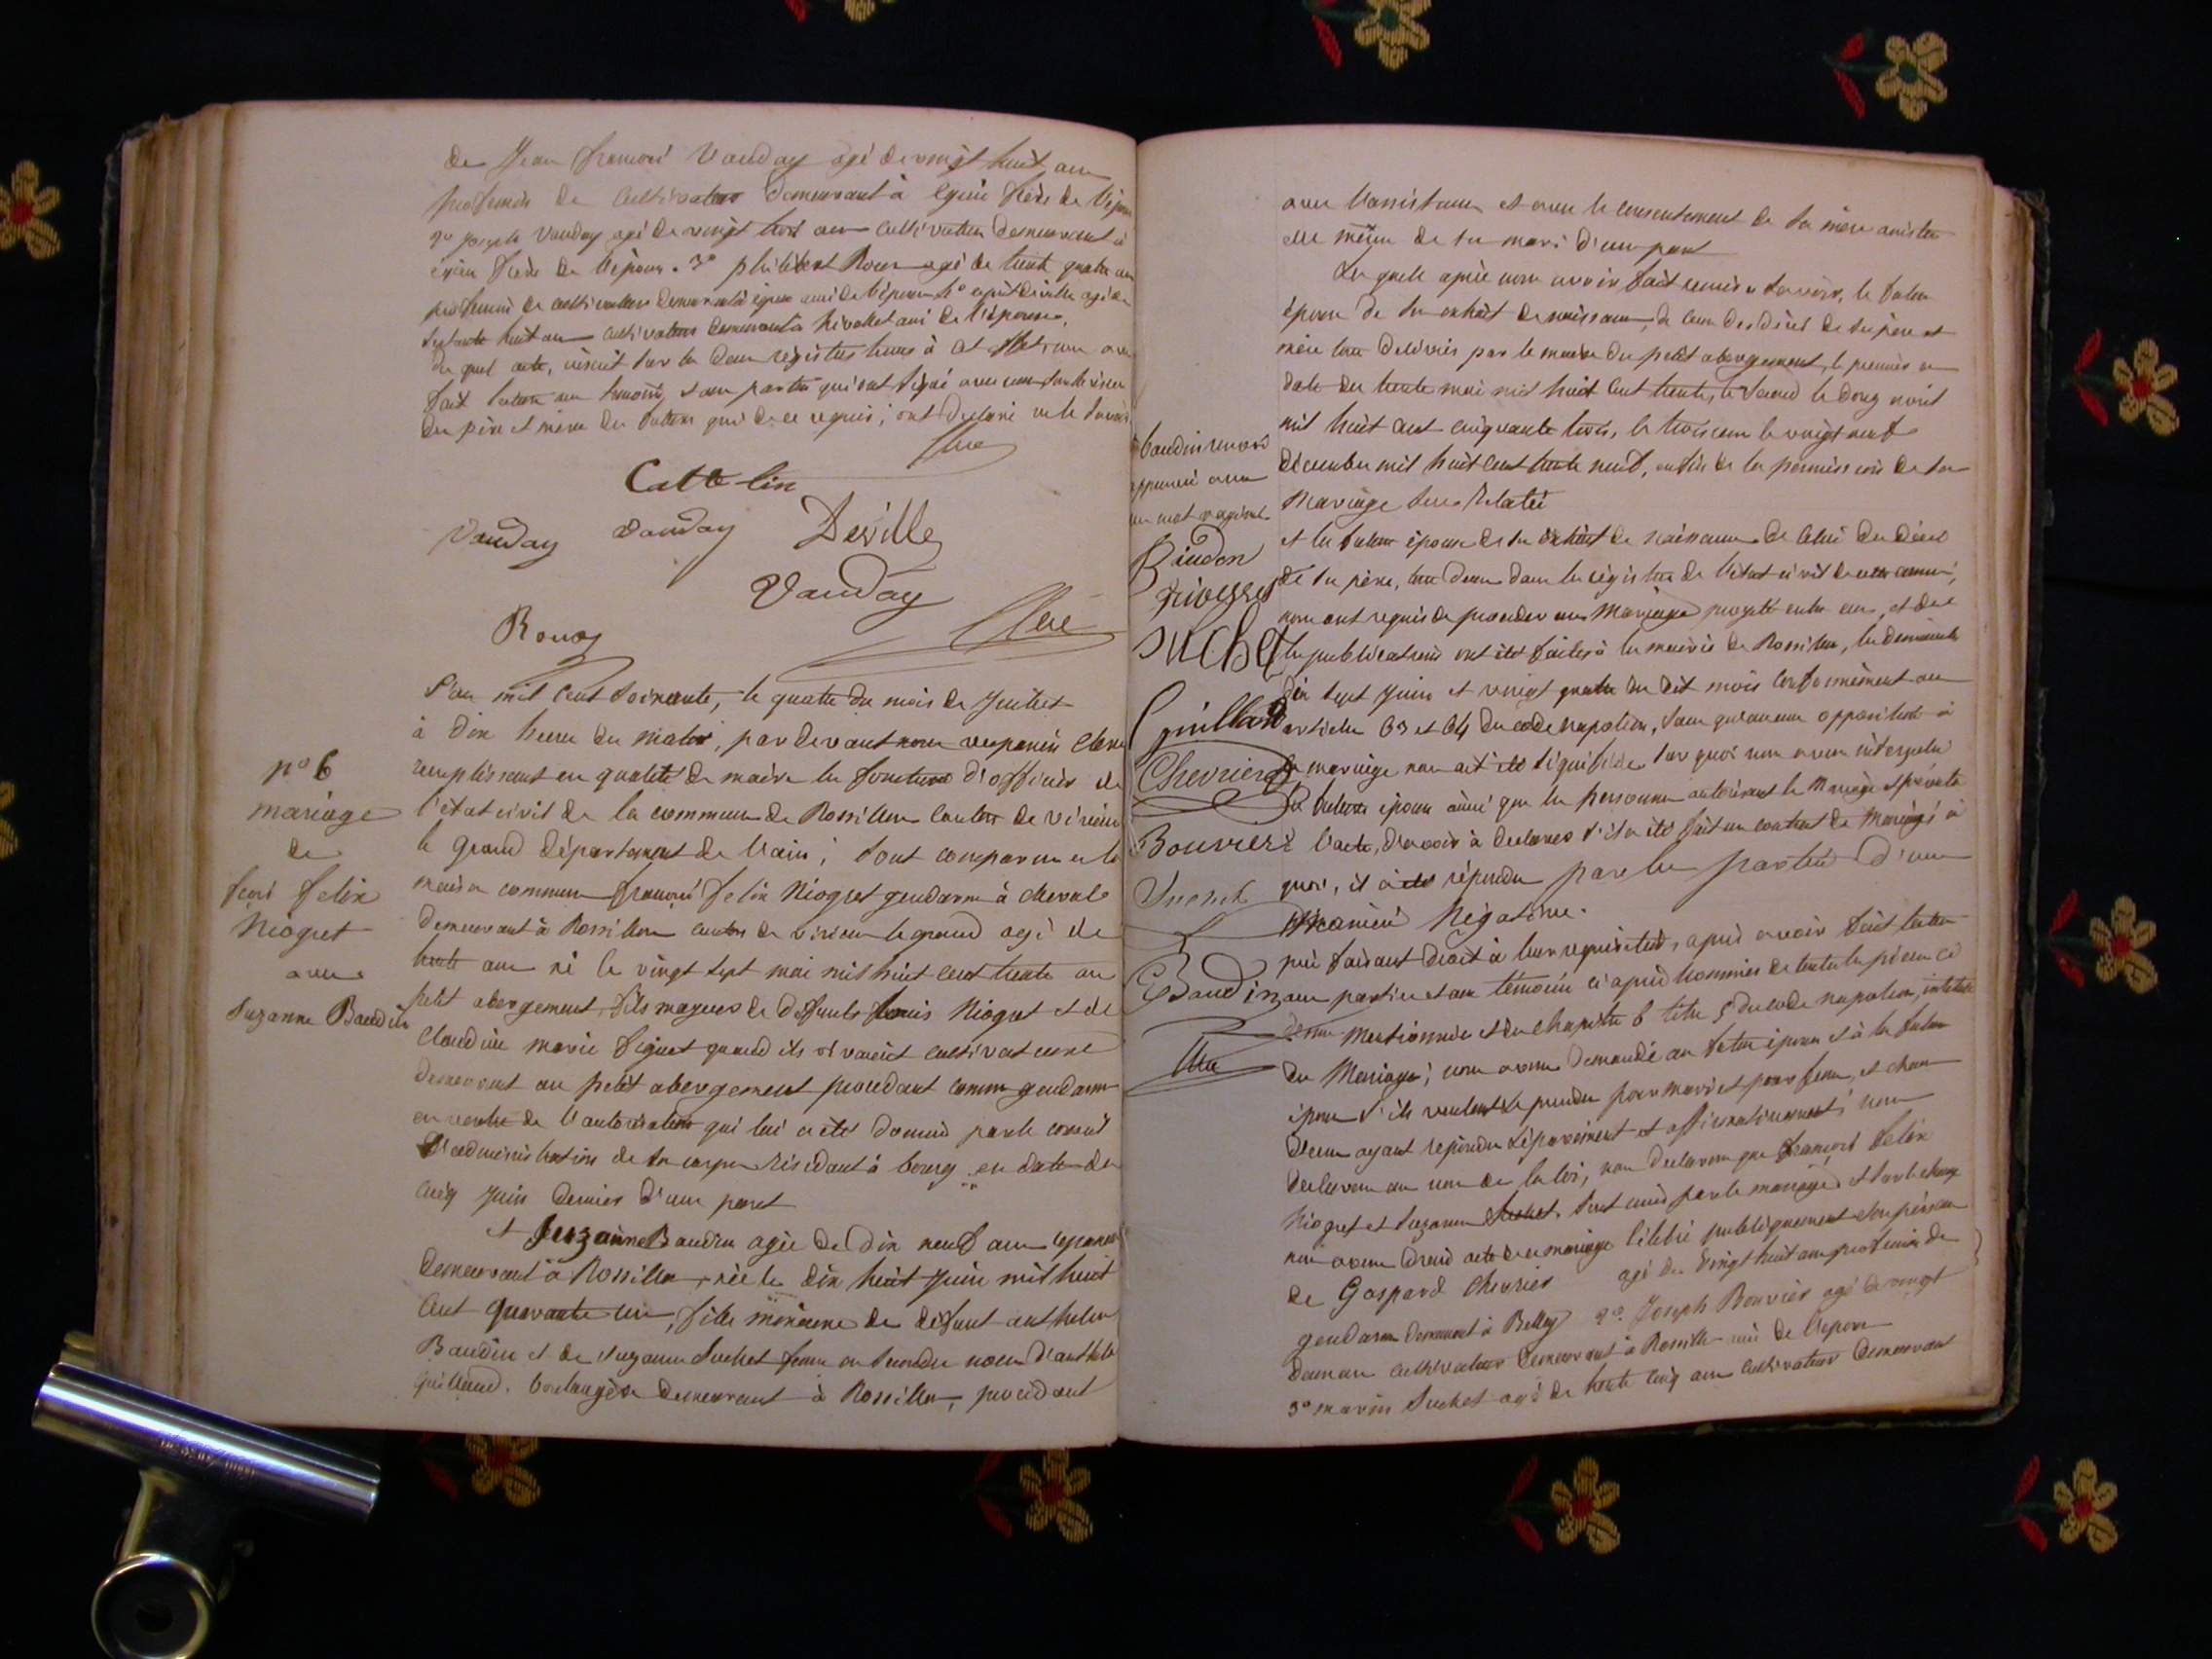 de Jean françois Vauday agé de vingt huit ans
profession de cultivateur demeurant à frère de l'époux
2° joseph Vauday agé de vingt trois ans cultivateur demeurant à
frère de l'époux. 3° philibert Roux agé de trente quatre ans
profession de cultivateur demeurant à ami de l'époux 4° deville agé de
huit ans cultivateur demeurant à ami de l'épouse,
du quel acte, inscrit sur les deux registres tenus à cet effet, nous avons
fait lecture aux témoins, et aux parties qui ont signé avec nous
des père et mère des futurs qui de ce requis, ont déclaré ne le savoir
Cattelin
Vauday Vauday Deville
Vauday
Roux
L'an mil cent soixante, le quatre du mois de Juillet
à dix heures du matin, par devant nous
remplissant en qualité de maire les fonctions d'officier de
l'état civil de la commune de Rossillon canton de virieu
le grand département de l'ain; sont comparus en la
maison commune françois felix Niogret gendarme à cheval
demeurant à Rossillon canton de virieu le grand agé de
trente ans né le vingt sept mai mil huit cent trente au
petit abergement, fils majeur de défunts Niogret et de
Claudine marie quand ils vivaient cultivateurs
demeurant au petit abergement procédant comme gendarme
en vertu de l'autorisation qui lui a été donnée par le conseil
d'administration de son corps résidant à bourg en date du
cinq Juin dernier d'une part
n° 6
mariage
de
felix
Niogret
avec
Suzanne Baudin
et Suzanne Baudin agée de dix neuf ans
demeurant à Rossillon, née le dix huit Juin mil huit
cent quarante un, fille mineure de défunt anthelme
Baudin et de Suzanne Suchet femme en secondes noces d'anthelme
Guilland, boulangère demeurant à Rossillon, procédant
avec l'assistance et avec le consentement de sa mère assistée
elle même de son mari d'une part
Les quels après nous avoir fait remise savoir, le futur
époux de son extrait de naissance, de ceux des décès de ses père et
mère tous délivrés par le maire du petit abergement, le premier en
date du trente mai mil huit cent trente, le second le douze août
mil huit cent cinquante trois, le troisième le vingt neuf
décembre mil huit cent trente neuf, enfin de la permission de son
mariage sus relatée
et la future épouse de son extrait de naissance de celui du décès
de son père, tous deux dans les registres de l'état civil de cette commune,
nous ont requis de procéder au Mariage projeté entre eux, et dont
les publications ont été faites à la mairie de Rossillon, les dimanches
dix sept Juin et vingt quatre du dit mois conformément aux
articles 63 et 64 du code napoléon, sans qu'aucune opposition à
ce mariage nous ait été signifiée, sur quoi nous avons interpelé
les futurs époux ainsi que les personnes autorisant le Mariage et présents
à l'acte, d'avoir à déclarer s'il a été fait un contrat de Mariage, à
quoi, il a été répondu par les parties d'une
Manière Négative.
puis faisant droit à leur réquisition, après avoir fait lecture
aux parties et aux témoins ci après nommés de toutes les pièces ci
dessus mentionnées et du chapitre 6 titre 5 du code napoléon, intitulé
du Mariage; nous avons demandé au futur époux et à la future
épouse s'ils veulent se prendre pour mari et pour femme, et chacun
d'eux ayant répondu séparément et affirmativement; nous
déclarons au nom de la loi, que françois felix
Niogret et Suzanne sont unis par le mariage, et sur le champ
nous avons dressé acte de ce mariage célébré publiquement en présence
de Gaspard Chevrier agé de Vingt huit ans profession de
gendarme demeurant à Belley 2° Joseph Bouvier agé de vingt
deux ans cultivateur demeurant à Rossillon ami de l'époux
3° marin Suchet agé de trente cinq ans cultivateur demeurant
Baudin
niogret
Suchet
Guilland
Chevrier
Bouvier
Suchet
Baudin